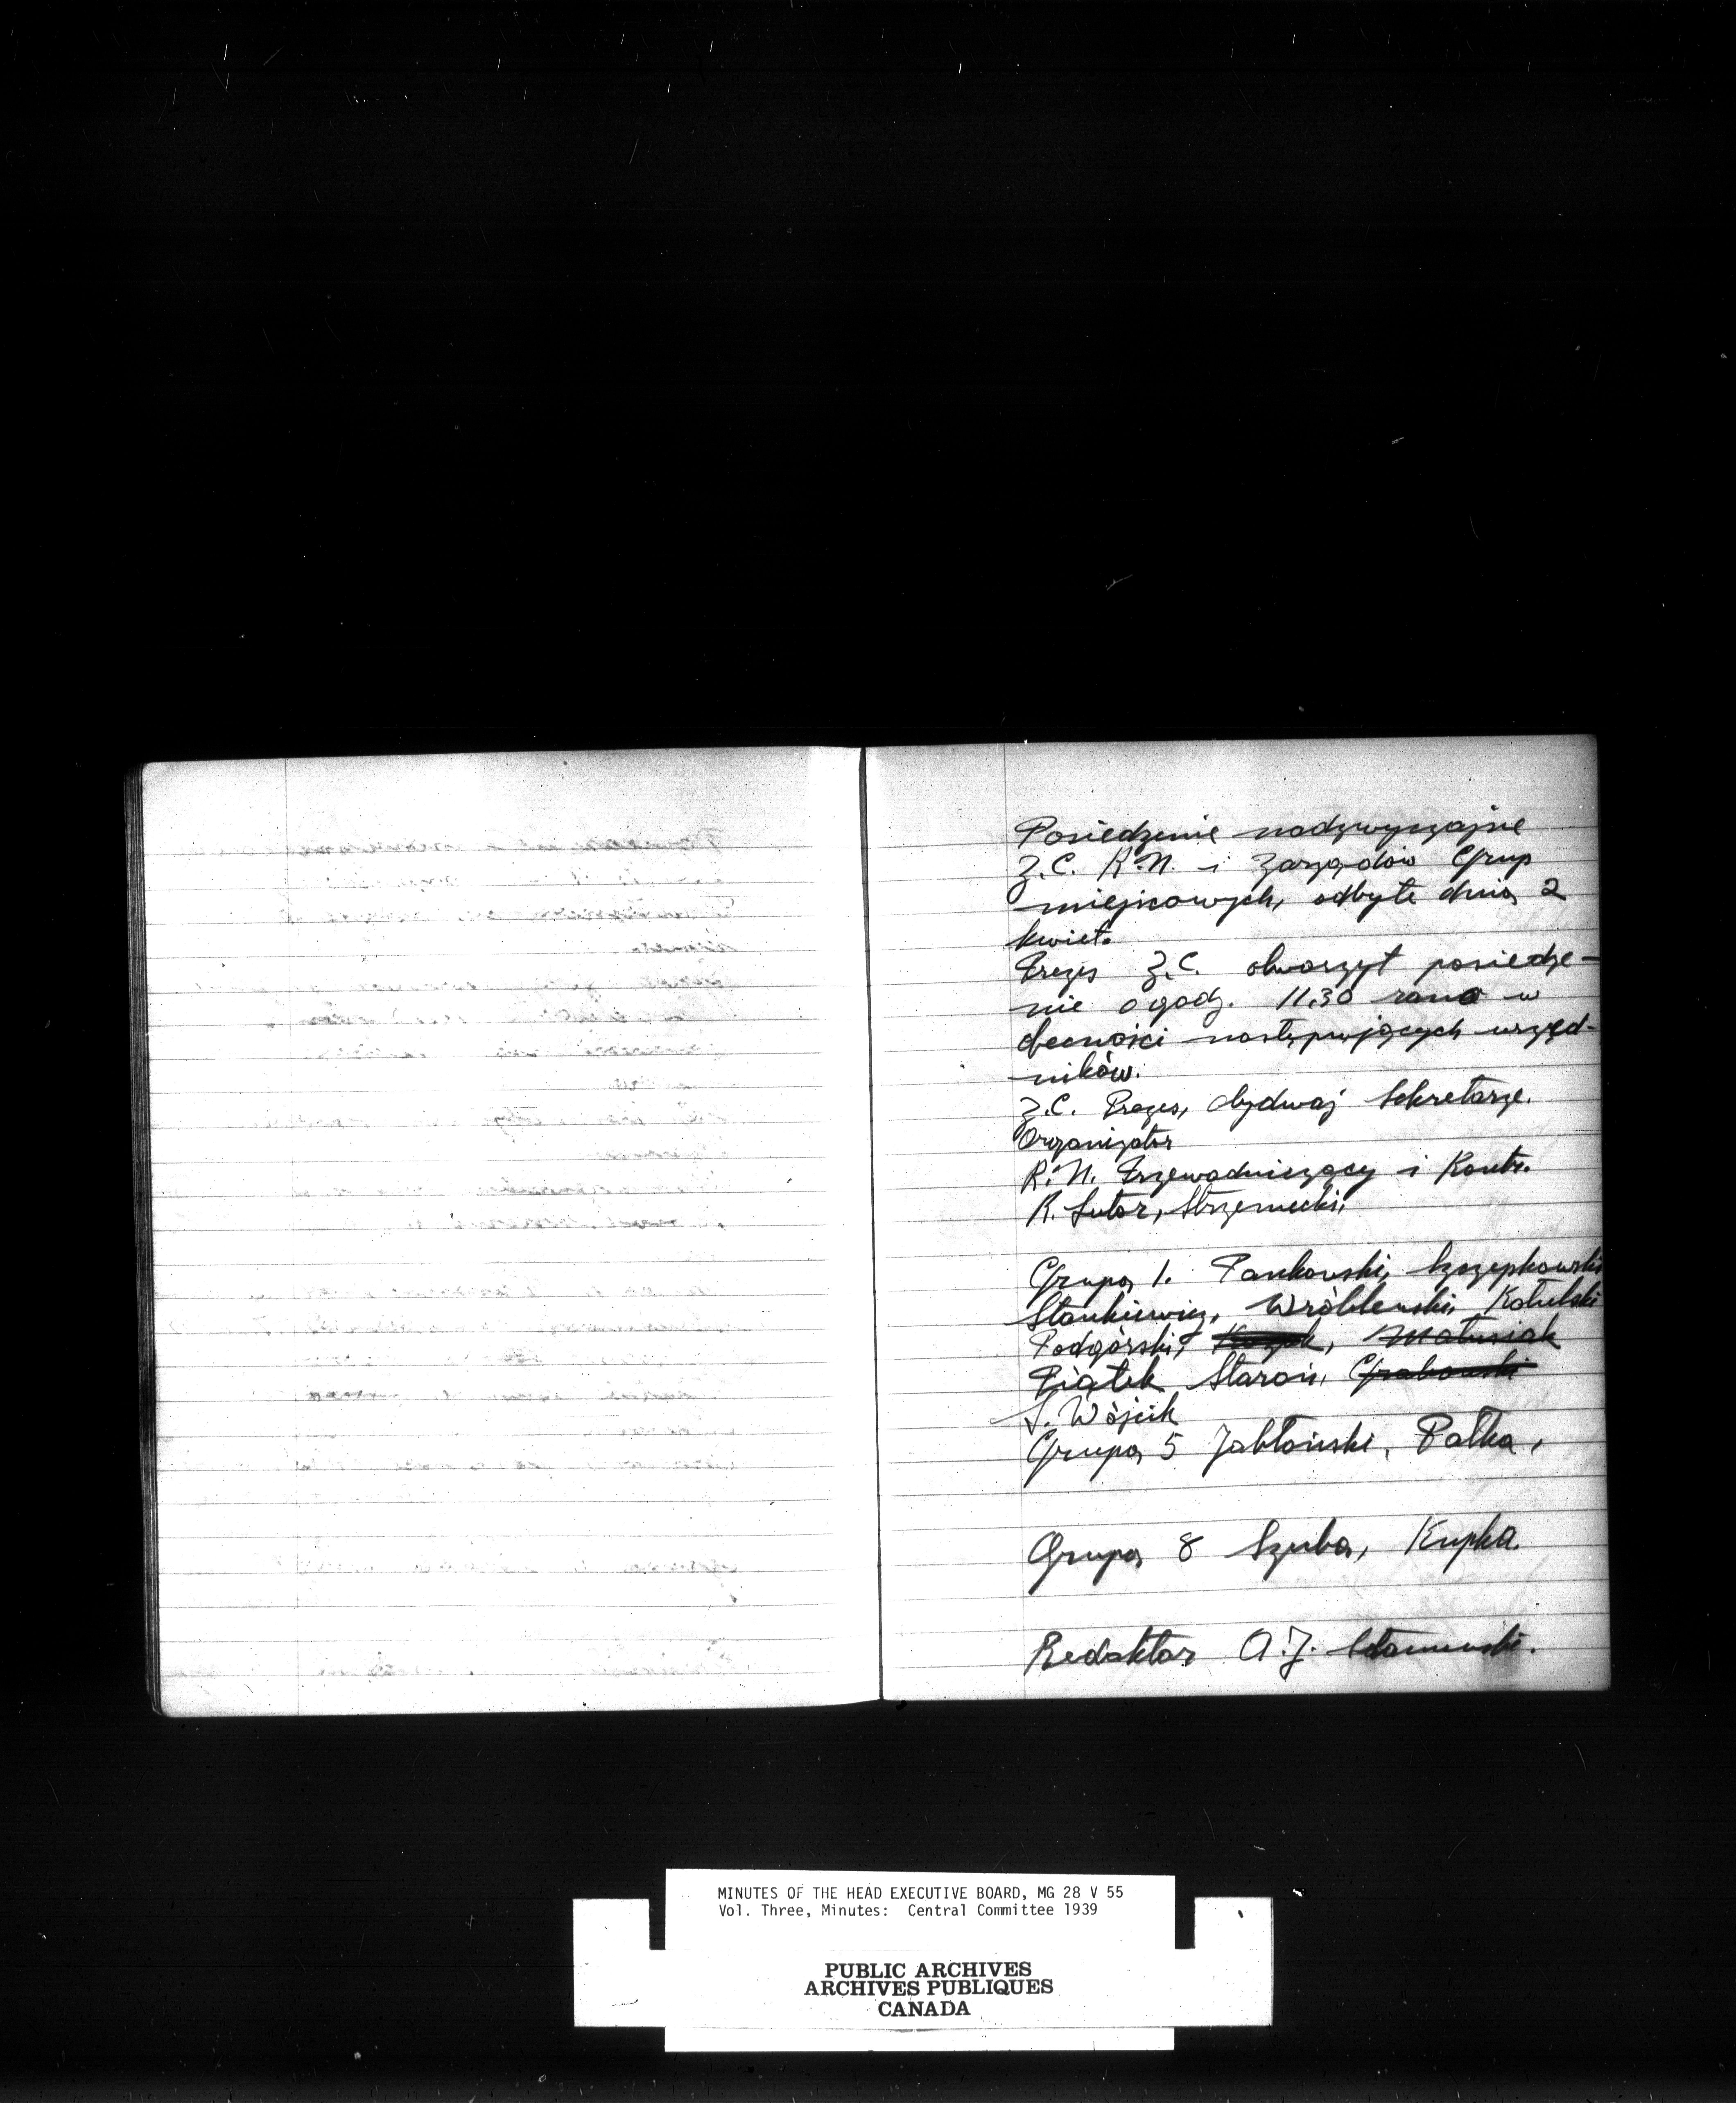 Posiedzenie nadzwyczajne
Z.C. R.N. i Zarządów Grup
miejscowych, odbyte dnia 2
kwiet.
Prezes Z.C. otworzył posiedze-
nie o godz. 11.30 rano w
obecności następujących urzęd-
ników.
Z.C. Prezes, obydwaj Sekretarze.
Organizator
R.N. Przewodniczący i Kontr.
R. Sutor, Strzemecki,
Grupa 1. Pankowski, Szczepkowski
Stankiewicz, Wróblewski, Kotulski
Podgórski, Matusiak
Piątek Staroń, Grabowski
S. Wójcik
Grupa 5 Jabłoński, Pałka,
Grupa 8 Szuba, Kupka.
Redaktor A.J.
MINUTES OF THE HEAD EXECUTIVE BOARD, MG 28 V 55
Vol. Three, Minutes: Central Committee 1939
PUBLIC ARCHIVES
ARCHIVES PUBLIQUES
CANADA